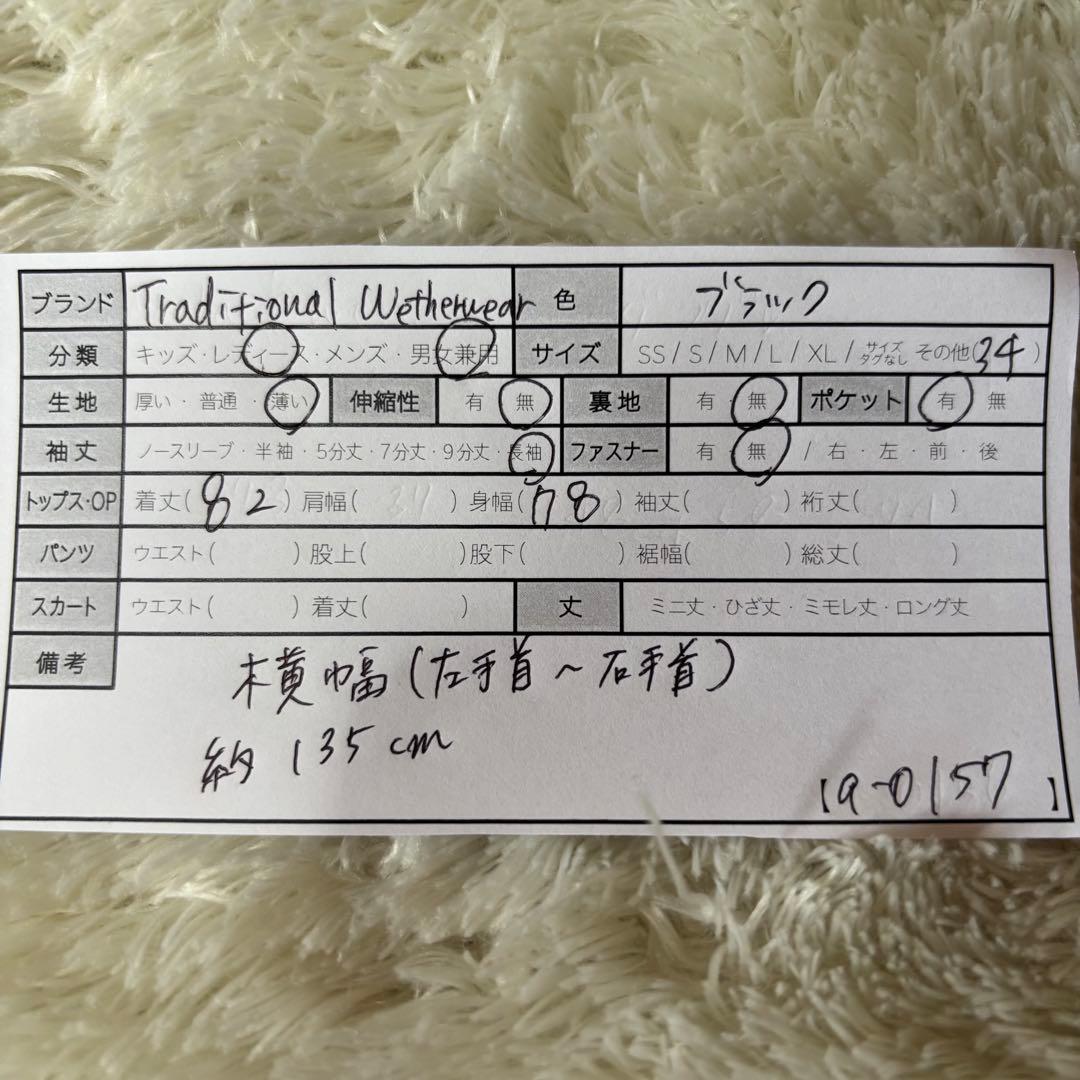 ブランド Traditional Wetherwear 色 ブラック
分類 キッズ・レディース・メンズ・男女兼用 サイズ SS / S / M / L / XL / サイズタグなし その他(34)
生地 厚い・普通・薄い 伸縮性 有 無 裏地 有・無 ポケット 有 無
袖丈 ノースリーブ・半袖・5分丈・7分丈・9分丈・長袖 ファスナー 有・無 / 右・左・前・後
トップス・OP 着丈(82) 肩幅( ) 身幅(78) 袖丈( ) 裄丈( )
パンツ ウエスト( ) 股上( ) 股下( ) 裾幅( ) 総丈( )
スカート ウエスト( ) 着丈( ) 丈 ミニ丈・ひざ丈・ミモレ丈・ロング丈
備考 横幅(左手首~右手首)
約135cm
【a-0157】